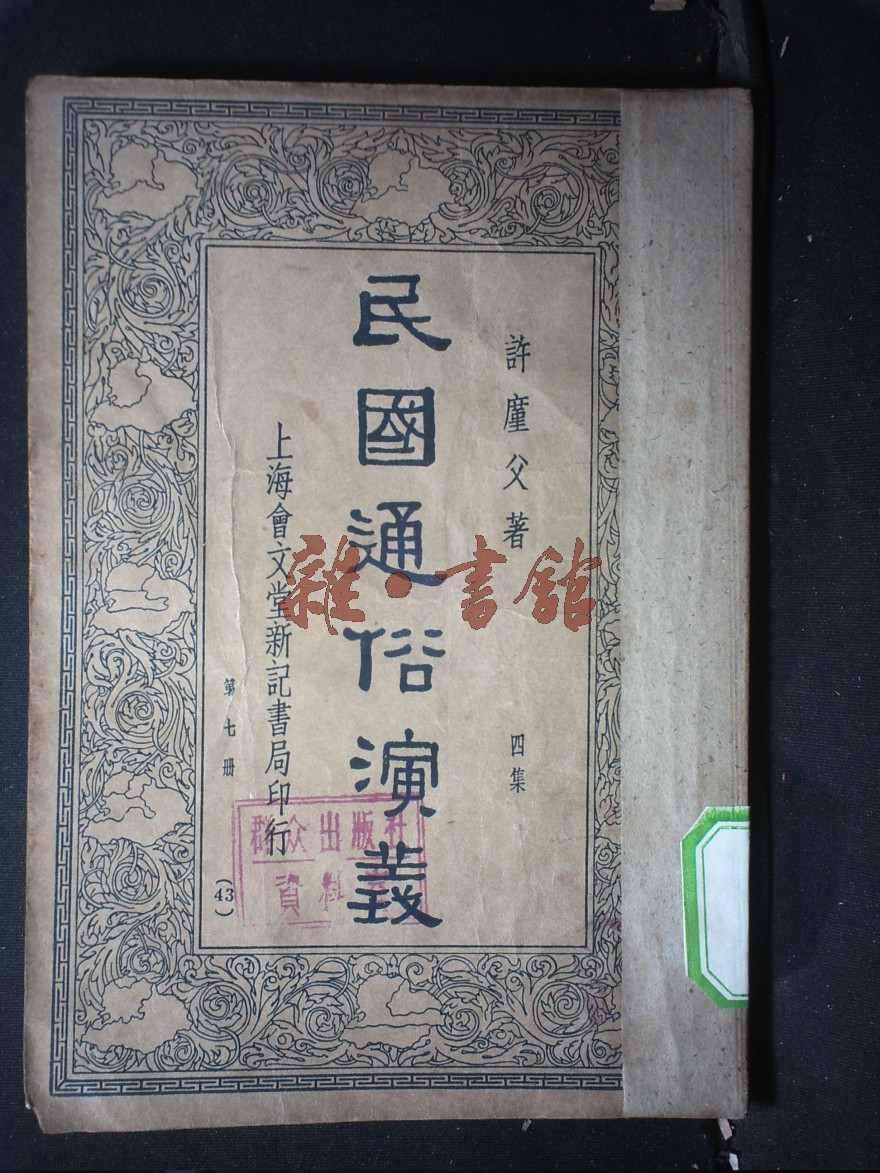 許廑父著
四集
民國通俗演義
上海會文堂新記書局印行
第七册
(43)
群众出版社
資料
雜·書館